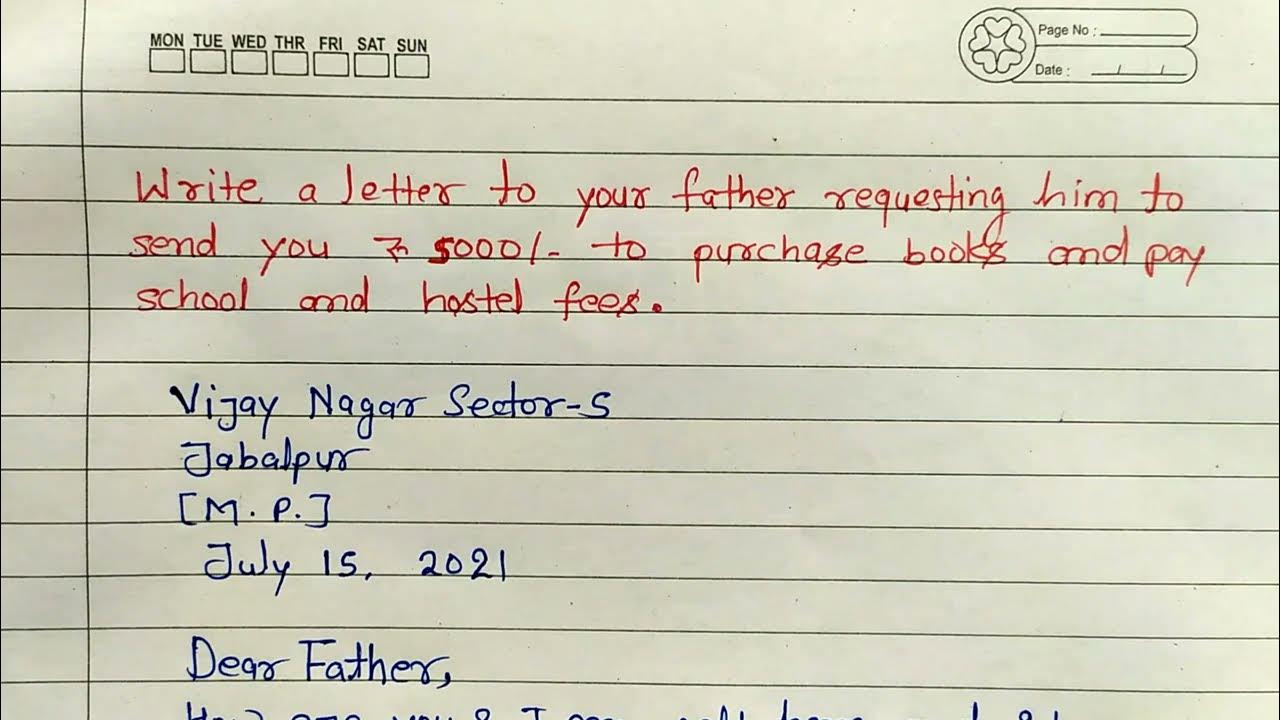 MON TUE WED THR FRI SAT SUN
Page No :
Date :
Write a letter to your father requesting him to
send you ₹ 5000/- to purchase books and pay
school and hostel fees.
Vijay Nagar Sector-5
Jabalpur
[M. P.]
July 15, 2021
Dear Father,
How are you? I am well here and